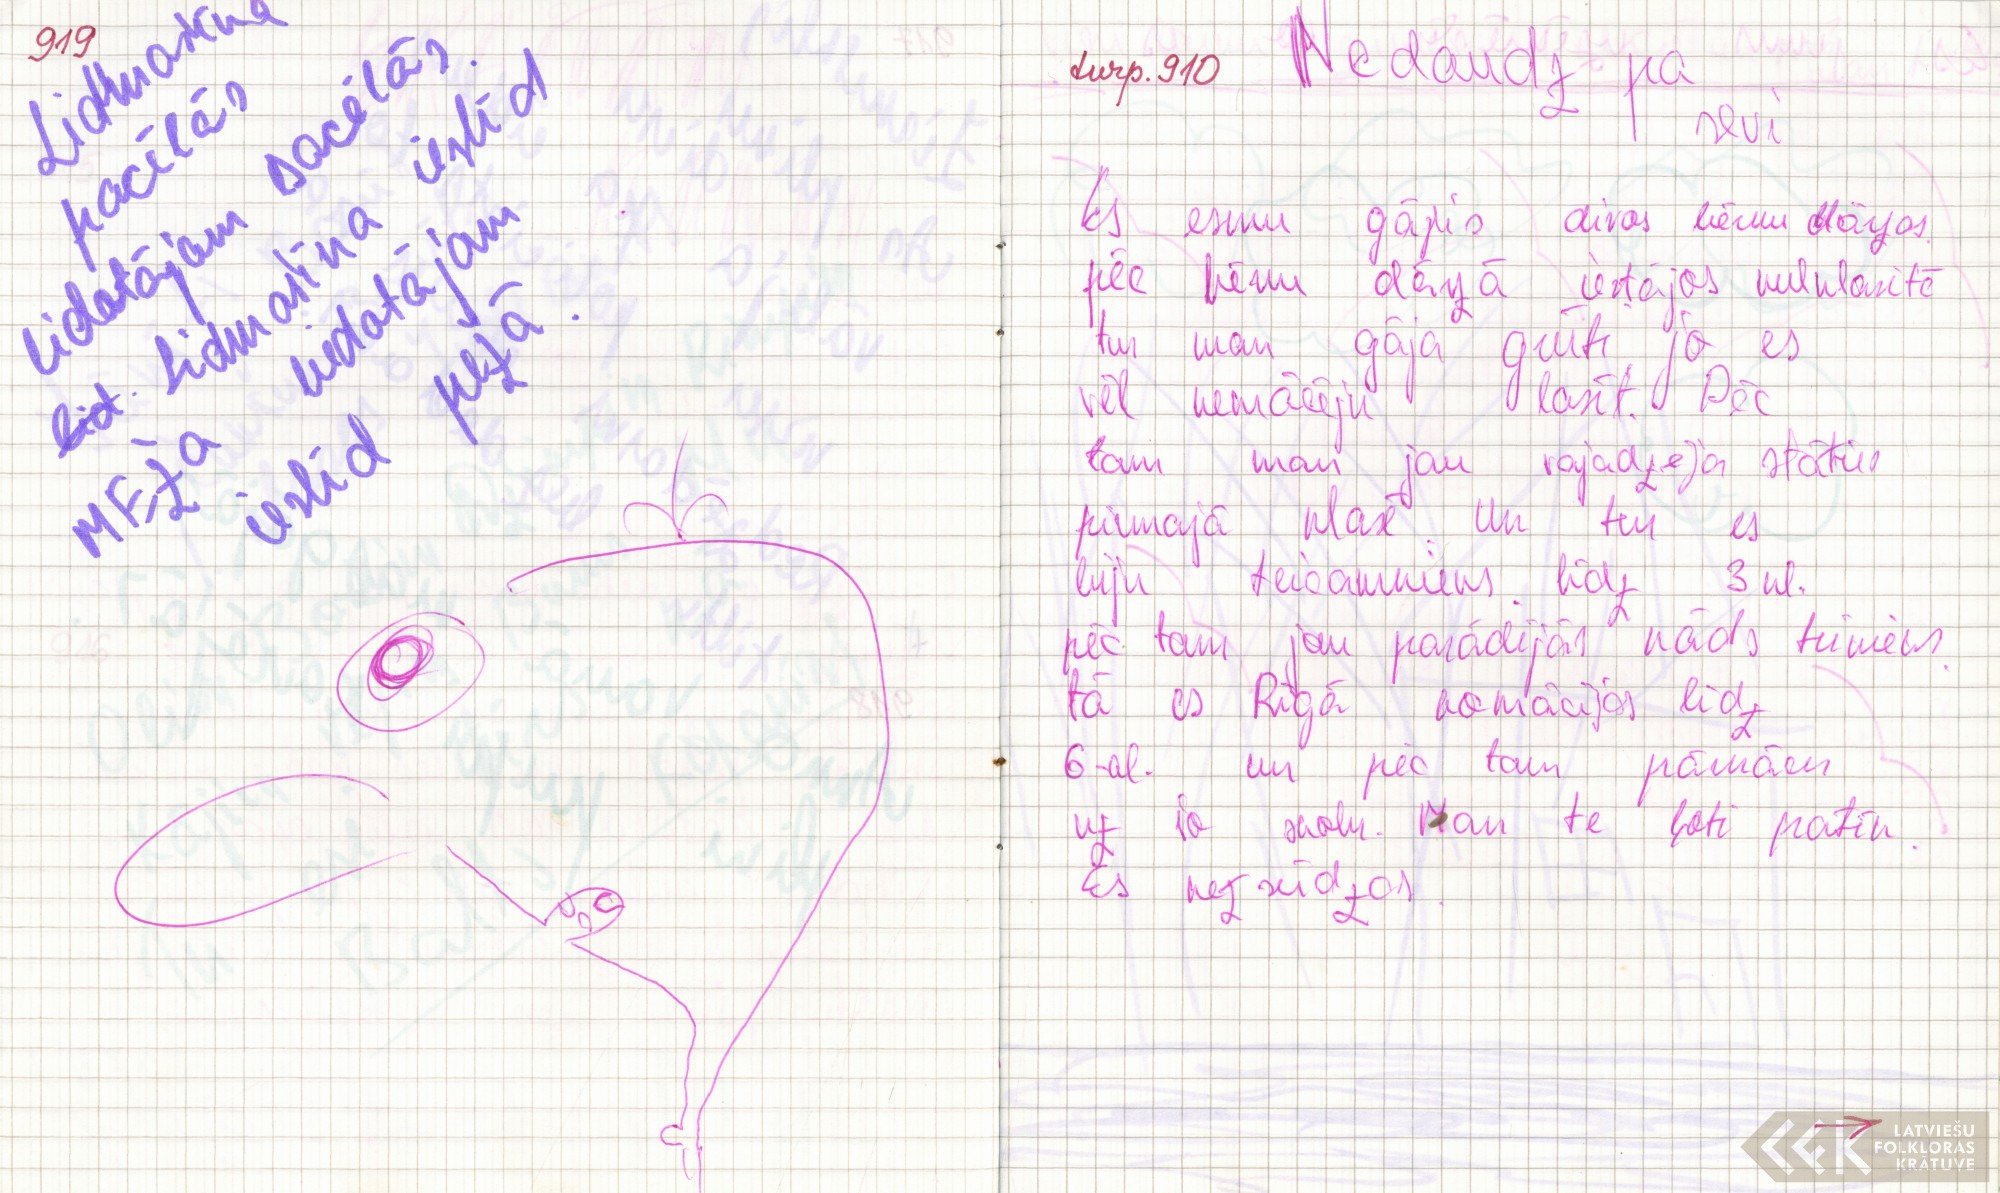 919
Lidmašīna
pacēlās
lidotājam sacēlās.
lid. Lidmašīna ieslīd
MEŽa lidotājam
ieslīd pežā.
turp. 910
Nedaudz pa
sevi
Es esmu gājis divos bērnu dārzos.
pēc bērnu dārzā iestājos nulklasītē
tur man gāja grūti jo es
vēl nemācēju lasīt. Pēc
tam man jau vajadzēja stāties
pirmajā klasē. Un tur es
biju teicamnieks. līdz 3 kl.
pēc tam jau parādījās kāds trīnieks.
tā es Rīgā nomācījos līdz
6-al. un pēc tam pārnācu
uz šo skolu. Man te ļoti patīk.
Es nežēidzos.
LATVIEŠU
FOLKLORAS
KRĀTUVE